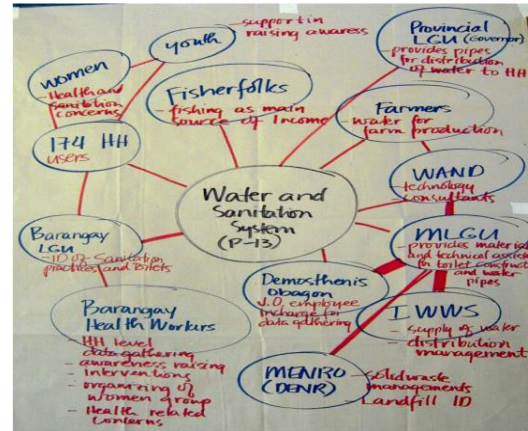 youth
- support in
raising awaress
Provincial
LGU (Governor)
- provides pipes
for distribution
of water to HH
women
- Health and
sanitation
concerns
Fisherfolks
- fishing as main
source of Income
Farmers
- water for
farm production
174 HH
users
WAND
- technology
consultants
Water and
Sanitation
System
(P-13)
Barangay
LGU
- ID of Sanitation
practices and toilets
MLGU
- provides material
and technical assist
in toilet construct
and water
pipes
Demosthenis
Obagon
J.O. employee
incharge for
data gathering
IWWS
- supply of water
- distribution
management
Barangay
Health Workers
- HH level
data gathering
- awareness raising
- Interventions
- organizing of
women group
- Health related
concerns
MENRO
(DENR)
- solid waste
managements
- Landfill ID